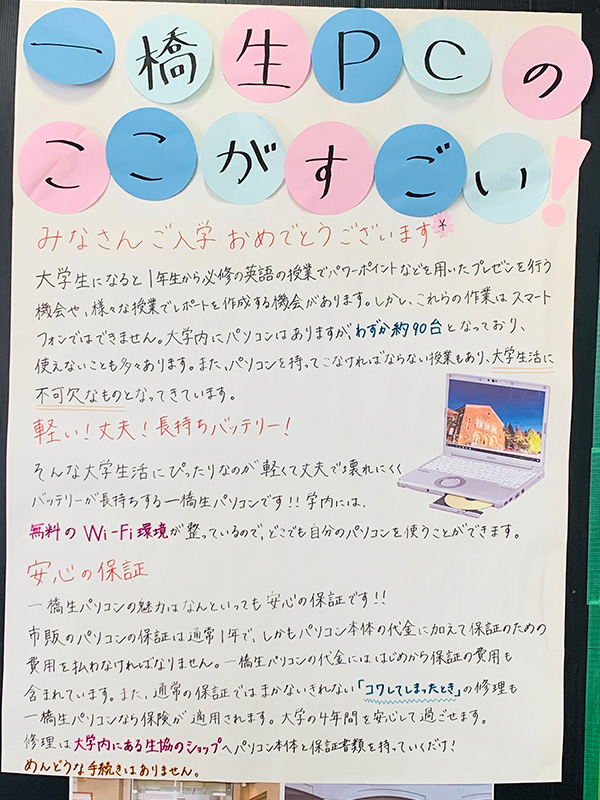 一橋生PCの
ここがすごい!
みなさんご入学おめでとうございます*
大学生になると1年生から必修の英語の授業でパワーポイントなどを用いたプレゼンを行う
機会や、様々な授業でレポートを作成する機会があります。しかし、これらの作業はスマート
フォンではできません。大学内にパソコンはありますが、わずか約90台となっており、
使えないことも多々あります。また、パソコンを持ってこなければならない授業もあり、大学生活に
不可欠なものとなってきています。
軽い!丈夫!長持ちバッテリー!
そんな大学生活にぴったりなのが軽くて丈夫で壊れにくく
バッテリーが長持ちする一橋生パソコンです!!学内には、
無料のWi-Fi環境が整っているので、どこでも自分のパソコンを使うことができます。
安心の保証
一橋生パソコンの魅力はなんといっても安心の保証です!!
市販のパソコンの保証は通常1年で、しかもパソコン本体の代金に加えて保証のための
費用を払わなければなりません。一橋生パソコンの代金にははじめから保証の費用も
含まれています。また、通常の保証ではまかないきれない「コワしてしまったとき」の修理も
一橋生パソコンなら保険が適用されます。大学の4年間を安心して過ごせます。
修理は大学内にある生協のショップへパソコン本体と保証書類を持っていくだけ!
めんどうな手続きはありません。